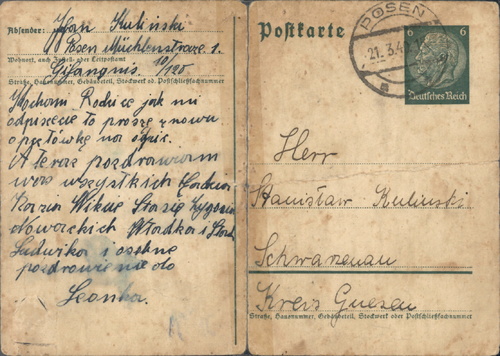 Absender: Jan Kuliński
Posen Mühlenstrasse 1.
Wohnort, auch Zustell- oder Leitpostamt
Gefängnis. 10/185
Straße, Hausnummer, Gebäudeteil, Stockwerk od. Postschließfachnummer
Kocham Rodzice jak mi
odpiszecie to proszę znowu
na odpis.
A teraz pozdrawiam
was wszystkich
Kazia Wikcie Stasię
Nowackich Władka i
Ludwika i osobne
pozdrowienie do
Leonka.
Postkarte
POSEN
21.3.4
a
6 6
Deutsches Reich
Herr
Stanisław Kulinski
Schwarzenau
Kreis Gnesen
Straße, Hausnummer, Gebäudeteil, Stockwerk oder Postschließfachnummer